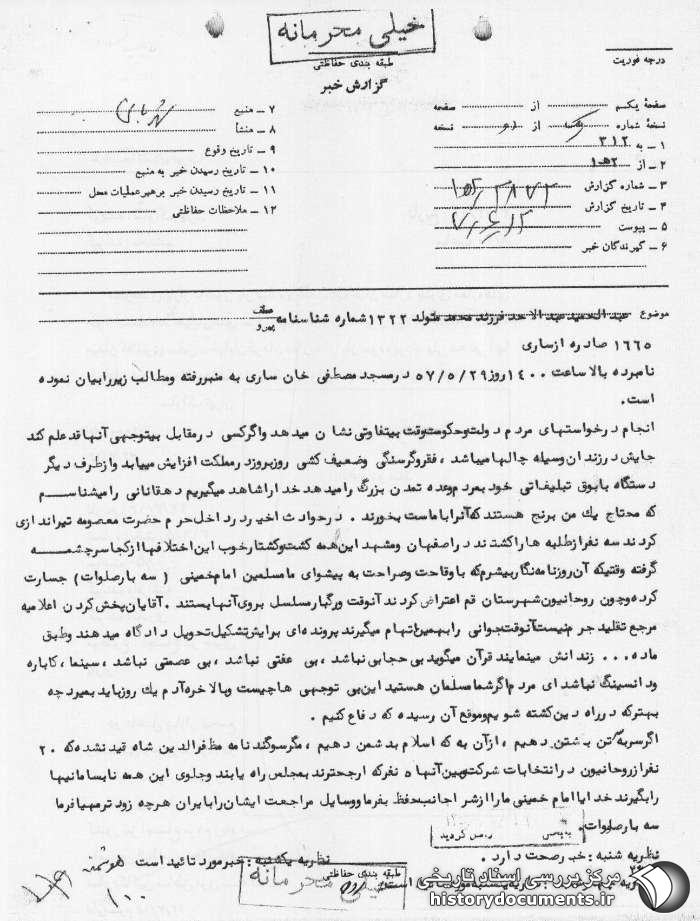 خیلی محرمانه
طبقه بندی حفاظتی
درجه فوریت
گزارش خبر
صفحهٔ یکم از صفحه
نسخهٔ شماره یک از دو نسخه
۱ ــ به ۳۱۲
۲ ــ از ۲ه۱
۳ ــ شماره گزارش
۴ ــ تاریخ گزارش
۵ ــ پیوست
۶ ــ گیرندگان خبر
۷ ــ منبع
۸ ــ منشأ
۹ ــ تاریخ وقوع
۱۰ ــ تاریخ رسیدن خبر به منبع
۱۱ ــ تاریخ رسیدن خبر برهبرعملیات محل
۱۲ ــ ملاحظات حفاظتی
موضوع عبدالحمید عبدالاحد فرزند محمد متولد ۱۳۲۲ شماره شناسنامه
۱۶۶۵ صادره از ساری
نامبرده بالا ساعت ۱۴۰۰ روز ۵۷/۵/۲۹ در مسجد مصطفی خان ساری به منبر رفته و مطالب زیر را بیان نموده
است.
انجام درخواستهای مردم دولت و حکومت وقت بیتفاوتی نشان میدهد و اگر کسی در مقابل بیتوجهی آنها قد علم کند
جایش در زندان وسیله چالها میباشد، فقر و گرسنگی وضعیف کشی روز بروز در مملکت افزایش مییابد و از طرف دیگر
دستگاه با بوق تبلیغاتی خود بمردم وعده تمدن بزرگ را میدهد خدا را شاهد میگیریم دهقانانی را میشناسم
که محتاج یک من برنج هستند که آنرا با ماست بخورند. در حوادث اخیر در داخل حرم حضرت معصومه تیراندازی
کردند سه نفر از طلبه ها را کشتند در اصفهان و مشهد این همه کشت و کشتار خوب این اختلافها از کجا سرچشمه
گرفته وقتیکه آن روزنامه نگار بیشرم که با وقاحت و صراحت به پیشوای ما مسلمین امام خمینی (سه بار صلوات) جسارت
کرده و چون روحانیون شهرستان قم اعتراض کردند آنوقت ورگبار مسلسل بروی آنها بستند. آقایان پخش کردن اعلامیه
مرجع تقلید جرم نیست آنوقت جوانی را بهمین اتهام میگیرند پرونده ای برایش تشکیل تحویل دادگاه میدهند و طبق
ماده... زندانش مینمایند قرآن میگوید بی حجابی نباشد، بی عفتی نباشد، بی عصمتی نباشد، سینما، کاباره
ودانسینگ نباشد ای مردم اگر شما مسلمان هستید این بی توجهی ها چیست وبالاخره آدم یک روز باید بمیرد چه
بهتر که در راه دین کشته شویم و موقع آن رسیده که دفاع کنیم.
اگر سر به تن بکشتن دهیم، از آن به که اسلام بدشمن دهیم، مگر سوگندنامه مظفرالدین شاه قید نشده که ۲۰
نفر از روحانیون در انتخابات شرکت و بین آنها ۵ نفر که ارجحترند بمجلس راه یابند وجلوی این همه نابسامانیها
را بگیرند خدایا امام خمینی ما را از شر اجانب حفظ بفرما و وسایل مراجعت ایشان را بایران هرچه زودتر مهیا فرما
سه بار صلوات.
نظریه شنبه: خبر صحت دارد.
نظریه یکشنبه: خبر مورد تائید است
طبقه بندی حفاظتی
خیلی محرمانه
مرکز بررسی اسناد تاریخی
historydocuments.ir